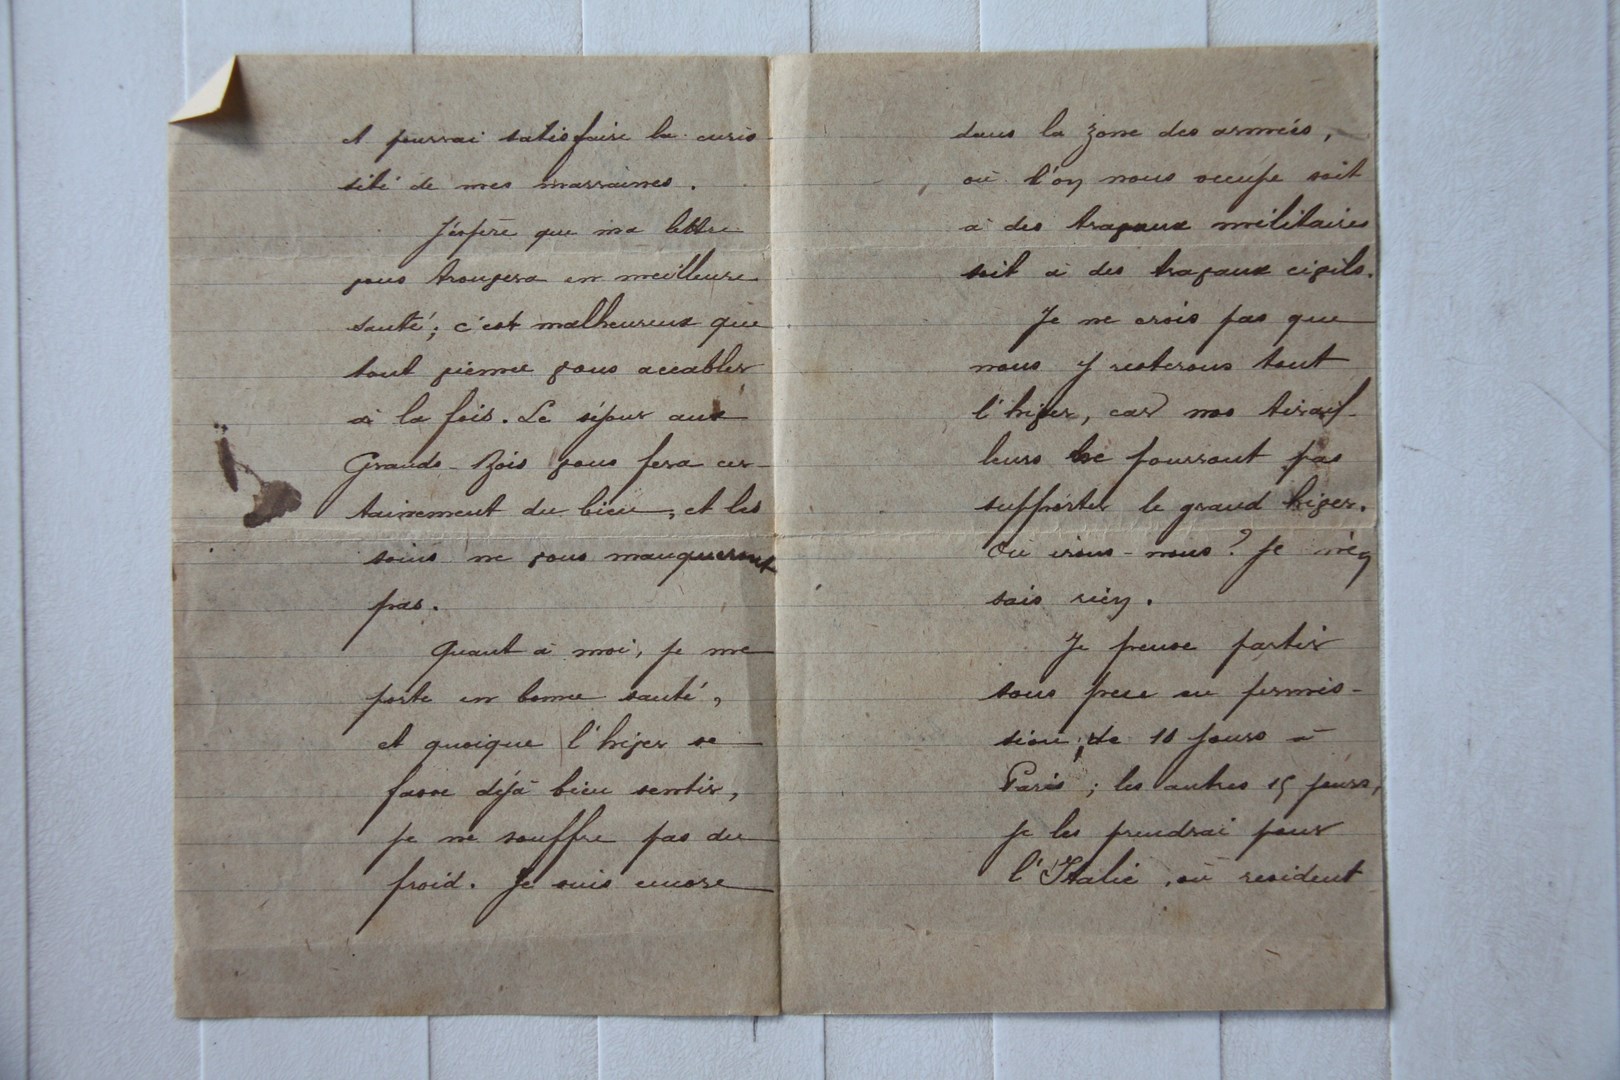 et pourrai satisfaire la curio
sité de mes marraines.
J'éspère que ma lettre
vous trouvera en meilleure
santé; c'est malheureux que
tout vienne vous accabler
à la fois. Le séjour aux
Grands-Bois vous fera cer-
tainement du bien, et les
soins ne vous manqueront
pas.
Quant à moi, je me
porte en bonne santé,
et quoique l'hiver se
fasse déjà bien sentir,
je ne souffre pas du
froid. Je suis encore
dans la zone des armées,
où l'on nous occupe soit
à des travaux militaires
soit à des travaux civils.
Je ne crois pas que
nous y resterons tout
l'hiver, car nos tirail-
leurs ne pourront pas
supporter le grand hiver.
Où irons-nous? Je n'en
sais rien.
Je pense partir
sous peu en permis-
sion de 10 jours à
Paris; les autres 15 jours,
je les prendrai pour
l'Italie, où resident